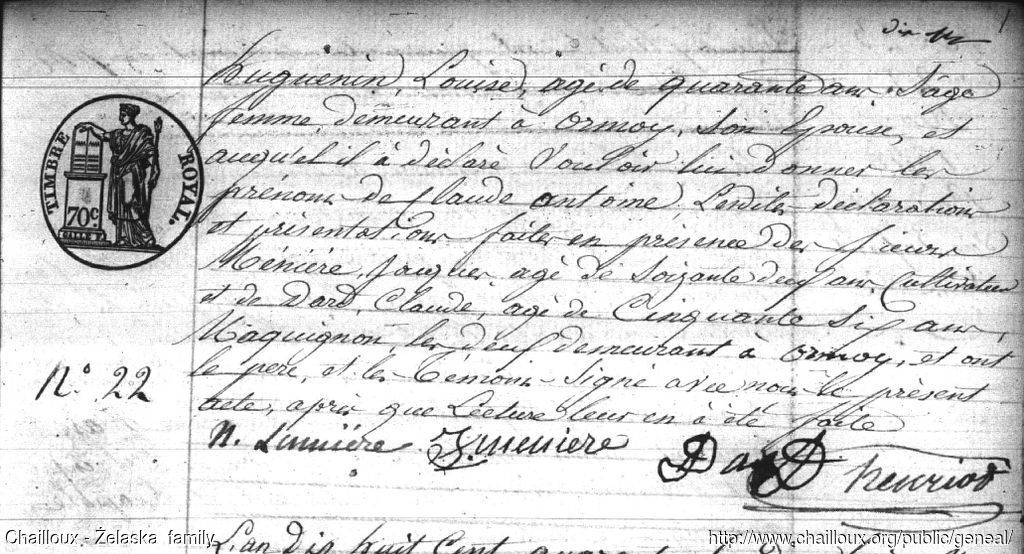 dix
Huguenin, Louise, agé de quarante ans, Sage
femme, demeurant à Ormoy, son Epouse, et
auquel il à déclaré Vouloir lui donner les
prénoms de Claude antoine, Lesdites déclarations
et présentations faites en présence des sieurs
Ménière, Jacques, agé de Soixante deux ans Cultivateur
et de Dard, Claude, agé de Cinquante Six ans,
Maquignon, les deux demeurant à Ormoy, et ont
le père, et les Témoins signé avec nous le présent
acte, après que Lecture leur en à été faite
N. Lumière J. meniere
DarD henriot
TIMBRE ROYAL.
70c
N.o 22
L'an Dix huit Cent quara
Chailloux - Żelaska family
http://www.chailloux.org/public/geneal/